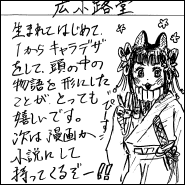 広小路堂
生まれてはじめて、
1からキャラデザ
をして、頭の中の
物語を形にした
ことが、とっても
嬉しいです。
次は漫画か、
小説にして
持ってくるぞー!!